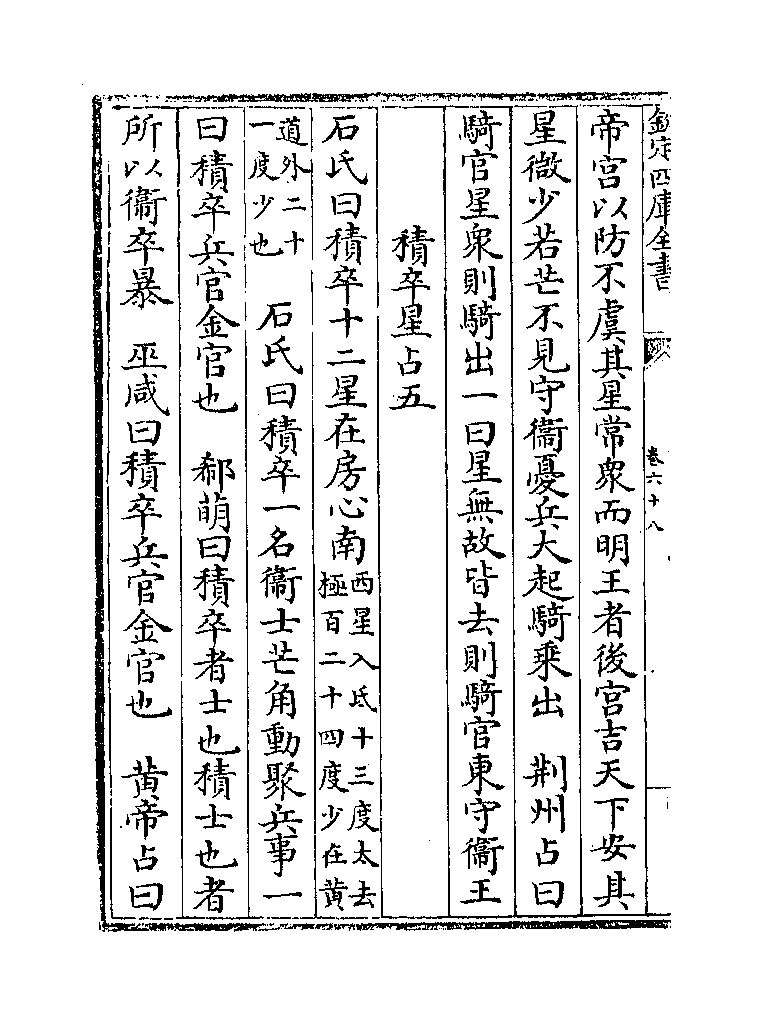 欽定四庫全書
卷六十八
帝宮以防不虞其星常衆而明王者後宮吉天下安其
星微少若芒不見守衞憂兵大起騎乘出　荆州占曰
騎官星衆則騎出一曰星無故皆去則騎官東守衞王
積卒星占五
石氏曰積卒十二星在房心南西星入氐十三度太去
極百二十四度少在黄
道外二十
一度少也　石氏曰積卒一名衞士芒角動聚兵事一
曰積卒兵官金官也　郗萌曰積卒者士也積士也者
所以衞卒暴　巫咸曰積卒兵官金官也　黄帝占曰